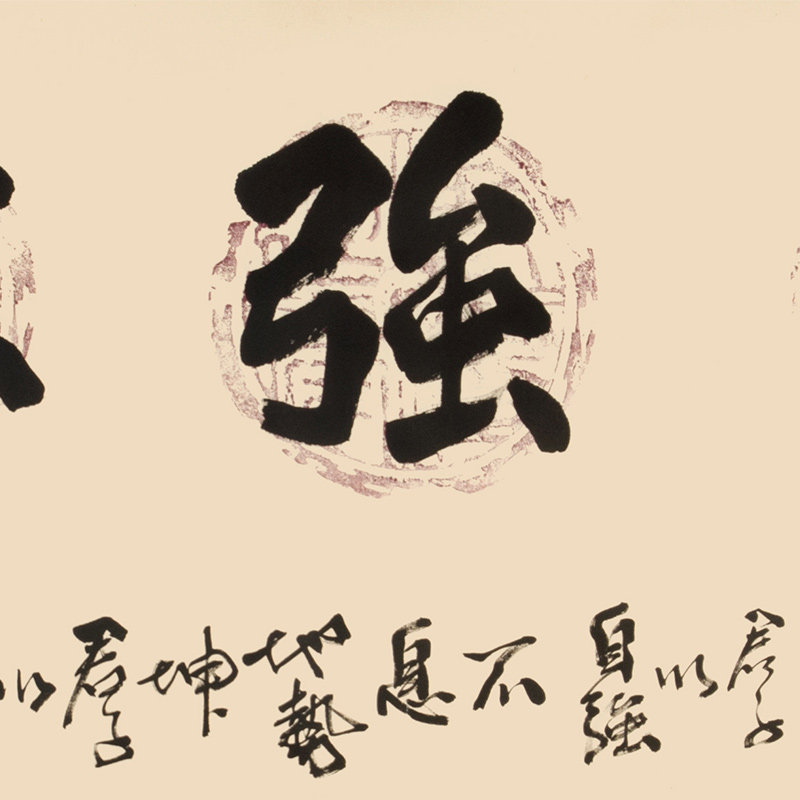 強
君子以自強不息地勢坤君子以